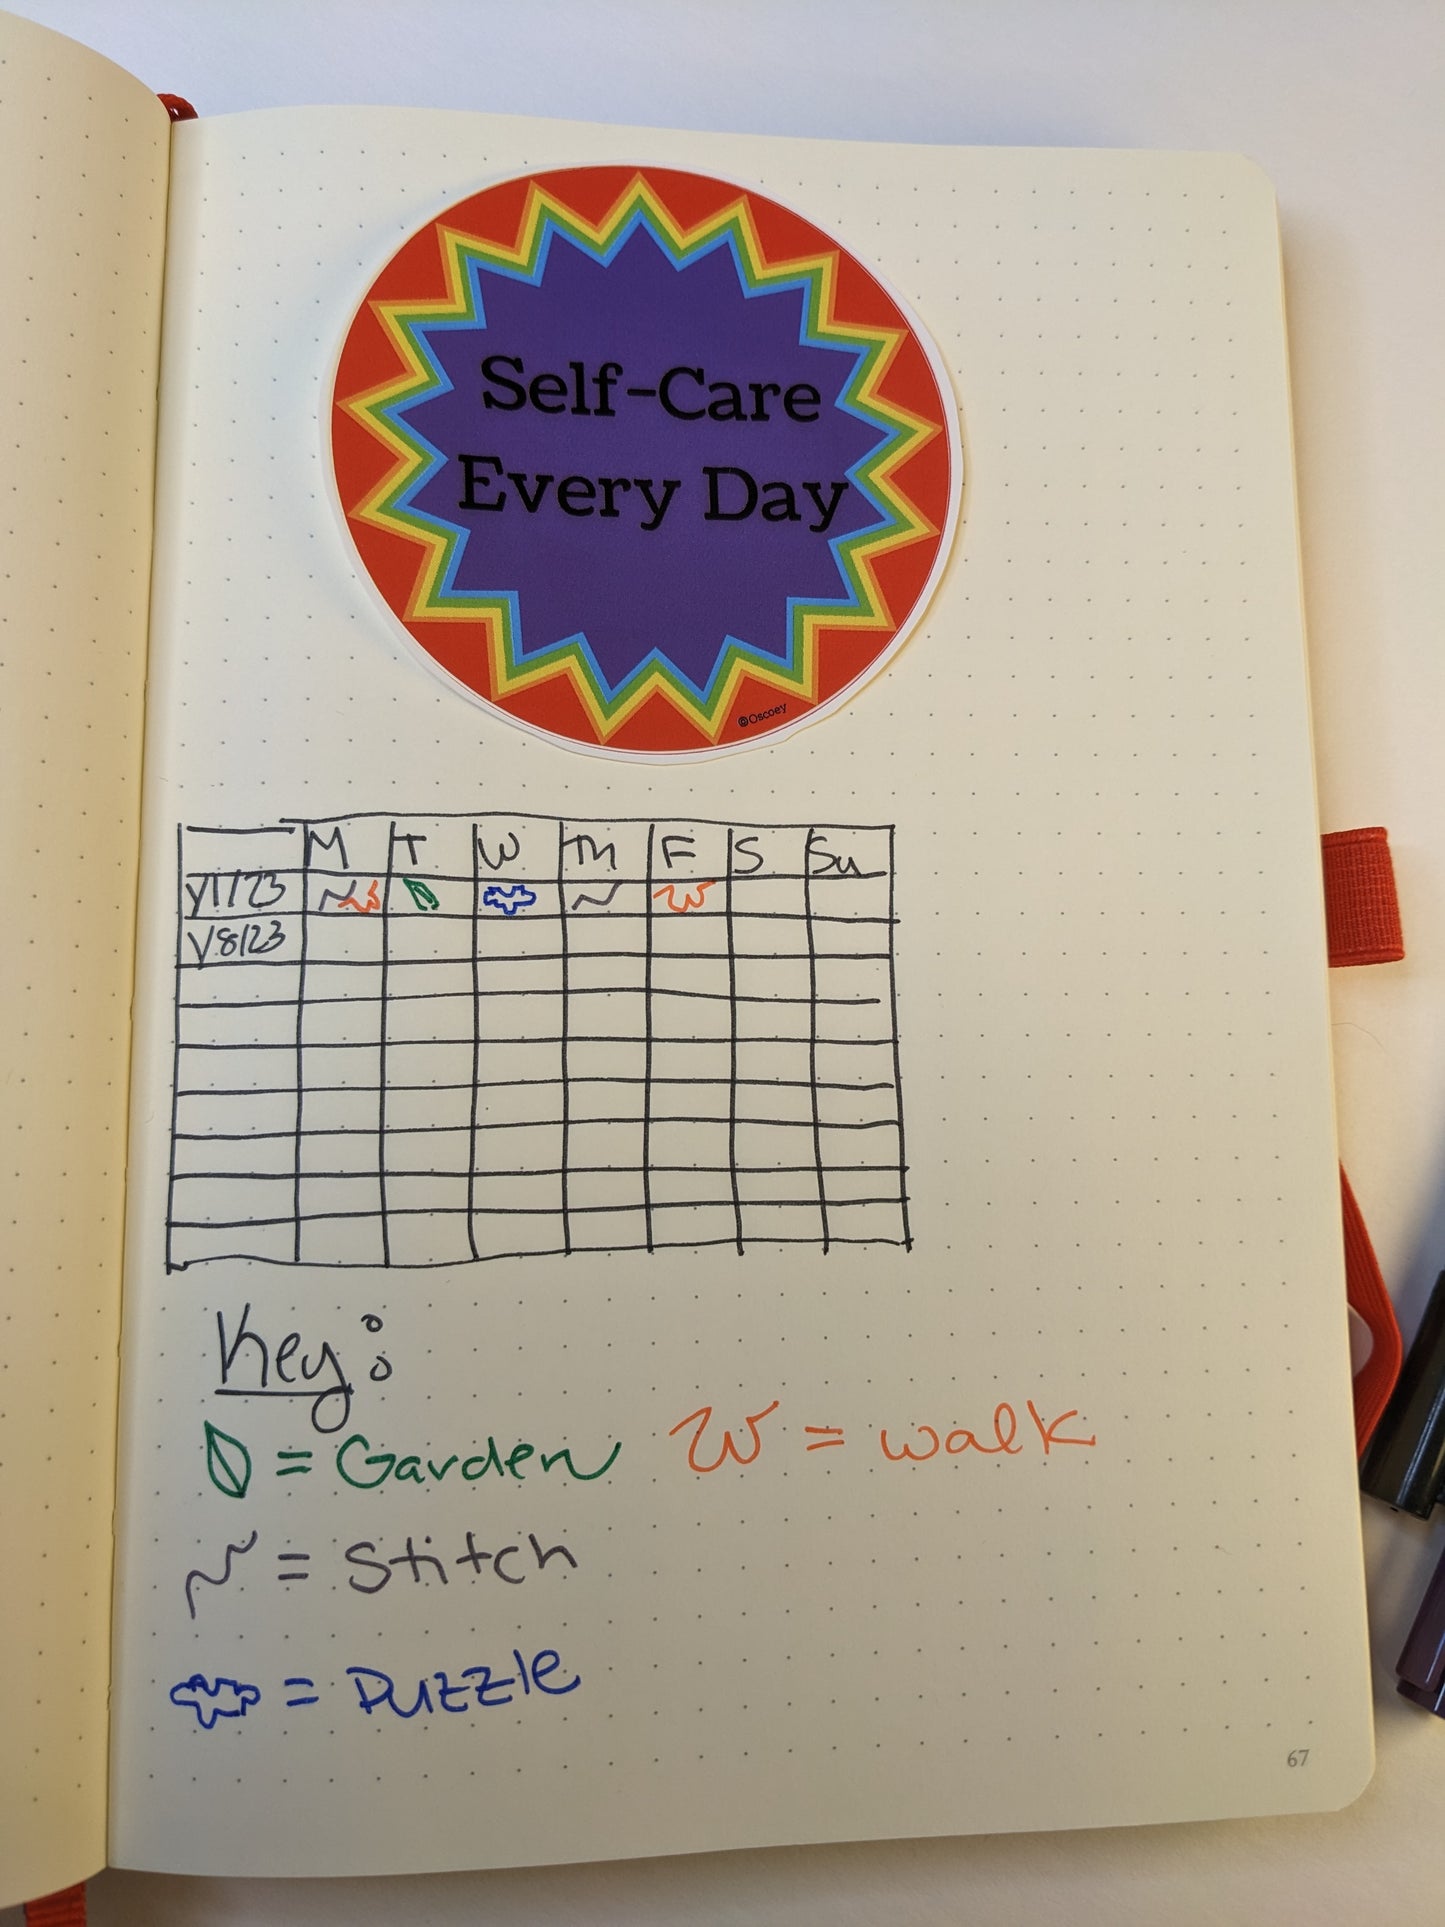 Self-Care
Every Day
©Oscoey
M T W Th F S Su
1/1/23
1/8/23
Key:
= Garden
W = walk
= Stitch
= Puzzle
67